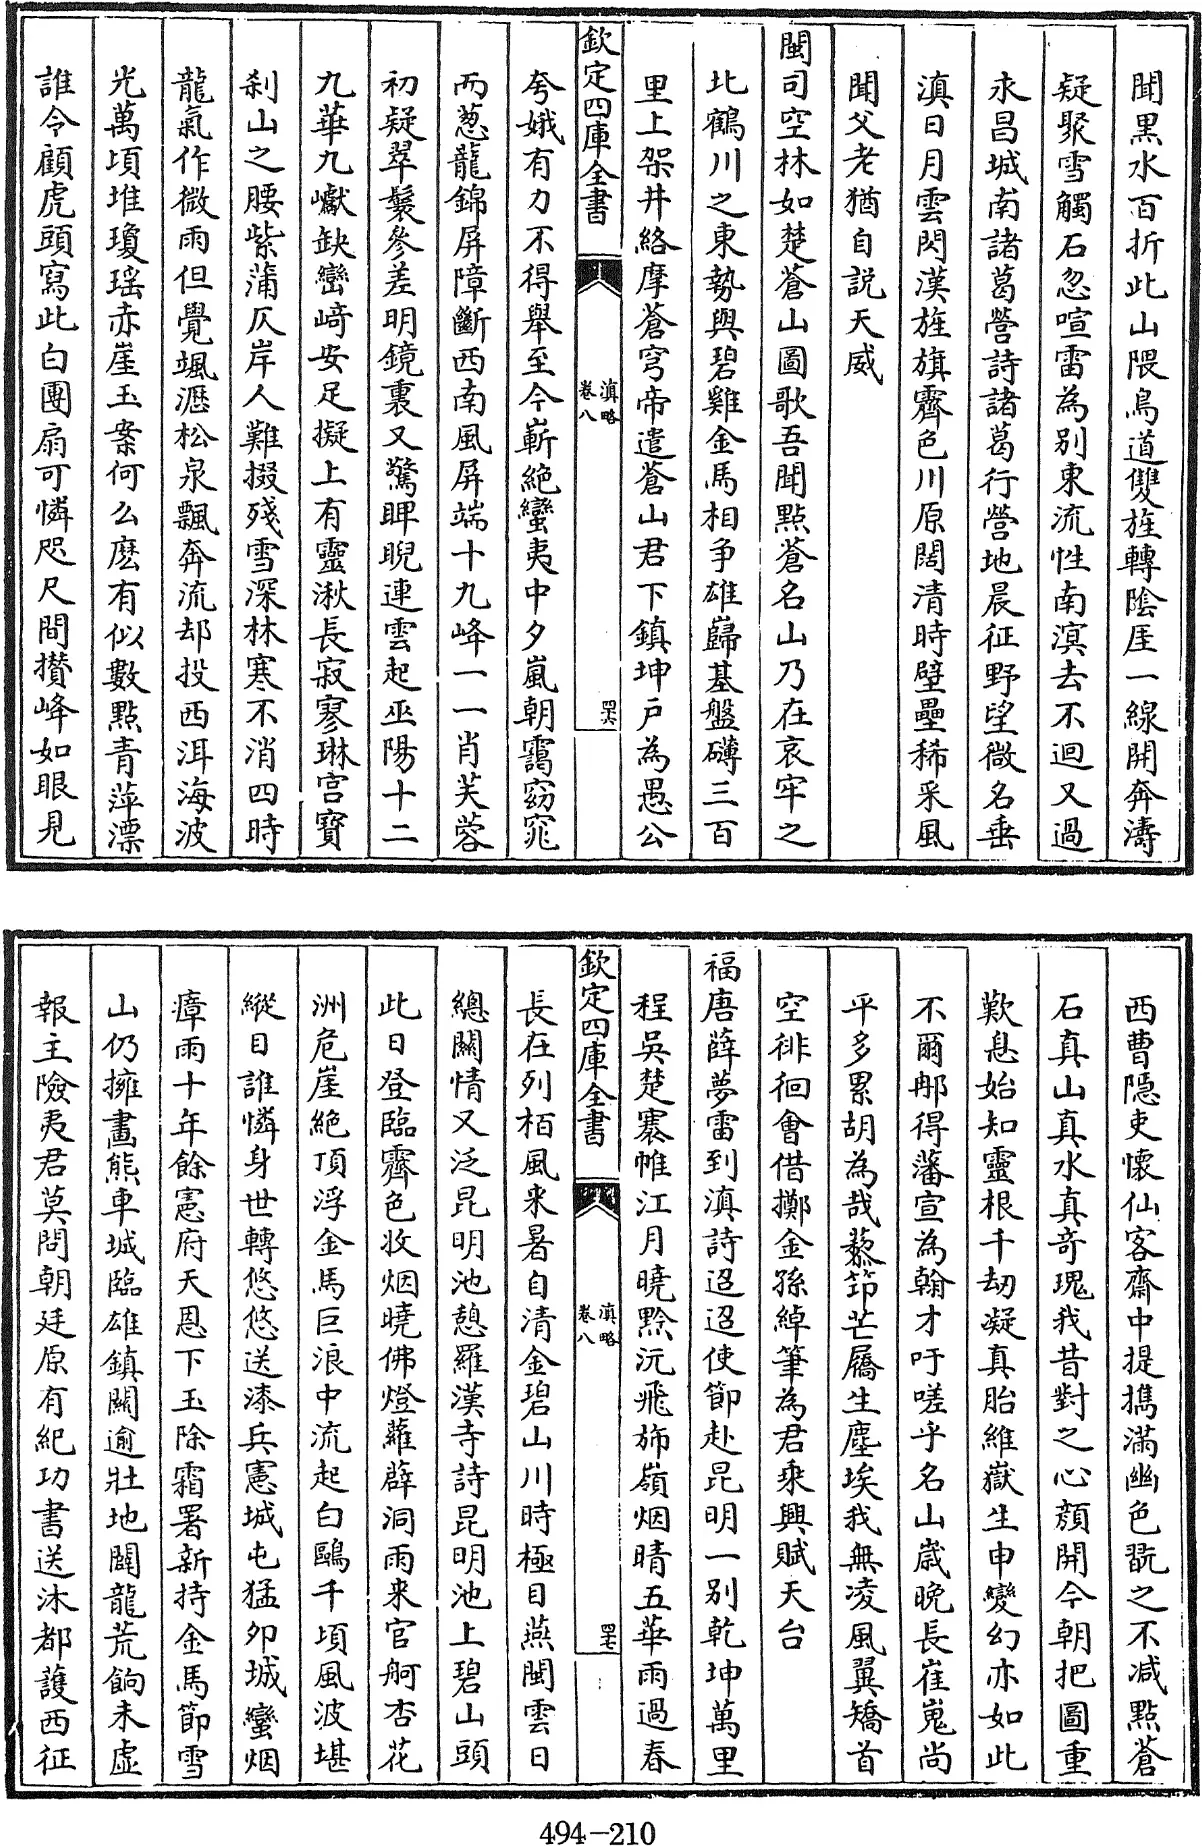 聞黒水百折此山隈鳥道雙旌轉陰厓一線開奔濤
疑聚雪觸石忽喧雷為別東流性南溟去不迴又過
永昌城南諸葛營詩諸葛行營地晨征野望微名垂
滇日月雲閃漢旌旗霽色川原闊清時壁壘稀采風
聞父老猶自説天威
閩司空林如楚蒼山圖歌吾聞點蒼名山乃在哀牢之
北鶴川之東勢與碧雞金馬相争雄巋基盤礴三百
里上架井絡摩蒼穹帝遣蒼山君下鎮坤户為愚公
欽定四庫全書
滇略
卷八
罘
夸娥有力不得舉至今嶄絶蠻夷中夕嵐朝靄窈窕
而葱龍錦屏障斷西南風屏端十九峰一一肖芙蓉
初疑翠鬟參差明鏡裏又驚睥睨連雲起巫陽十二
九華九巘缺巒崎安足擬上有靈湫長寂寥琳宫寶
刹山之腰紫蒲仄岸人難掇殘雪深林寒不消四時
龍氣作微雨但覺颯灑松泉飄奔流却投西洱海波
光萬頃堆瓊瑶赤崖玉案何么麽有似數點青萍漂
誰令顧虎頭寫此白團扇可憐咫尺間攅峰如眼見
西曹隠吏懷仙客齋中提攜滿幽色翫之不減點蒼
石真山真水真竒瑰我昔對之心顔開今朝把圖重
歎息始知靈根千刼凝真胎維嶽生申變幻亦如此
不爾郍得藩宣為翰才吁嗟乎名山歳晩長崔嵬尚
平多累胡為哉藜筇芒屩生塵埃我無凌風翼矯首
空徘徊會借擲金孫綽筆為君乘興賦天台
福唐薛夢雷到滇詩迢迢使節赴昆明一别乾坤萬里
程吳楚褰帷江月曉黔沅飛斾嶺烟晴五華雨過春
欽定四庫全書
滇略
卷八
罕七
長在列栢風来暑自清金碧山川時極目燕閩雲日
總關情又泛昆明池憩羅漢寺詩昆明池上碧山頭
此日登臨霽色收烟曉佛燈蘿薜洞雨来官舸杏花
洲危崖絶頂浮金馬巨浪中流起白鷗千頃風波堪
縱目誰憐身世轉悠悠送漆兵憲城屯猛夘城蠻烟
瘴雨十年餘憲府天恩下玉除霜署新持金馬節雪
山仍擁畫熊車城臨雄鎮關逾壯地闢龍荒餉未虚
報主險夷君莫問朝廷原有紀功書送沐都護西征
494-210